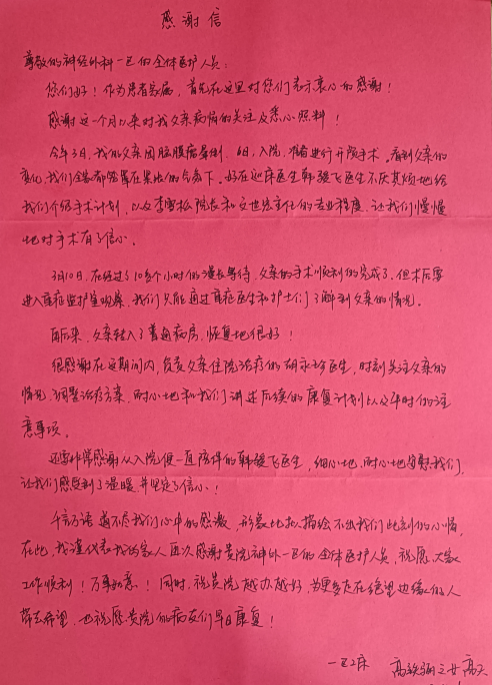 感谢信
尊敬的神经外科一区的全体医护人员：
您们好！作为患者家属，首先在这里对您们表示衷心的感谢！
感谢这一个月以来对我父亲病情的关注及悉心照料！
今年3月，我的父亲因脑膜瘤晕倒，6日入院，准备进行开颅手术。看到父亲的
变化，我们全家都笼罩在焦虑的气氛下。好在巡床医生韩强飞医生不厌其烦地给
我们介绍手术计划，以及李雪松院长和文世宏主任的专业程度，让我们慢慢
地对手术有了信心。
3月10日，在经过了10多个小时的漫长等待，父亲的手术顺利的完成了，但术后需
进入重症监护室观察，我们只能通过重症医生和护士们了解到父亲的情况。
再后来，父亲转入了普通病房，恢复地很好！
很感谢在这期间内，负责父亲住院治疗的胡永珍医生，时刻关注父亲的
情况，调整治疗方案，耐心地和我们讲述后续的康复计划以及平时的注
意事项。
还要非常感谢从入院便一直陪伴的韩强飞医生，细心地、耐心地安慰我们，
让我们感受到了温暖，并坚定了信心！
千言万语道不尽我们心中的感激，形象比拟描绘不出我们此刻的心情，
在此，我谨代表我的家人再次感谢贵院神外一区的全体医护人员，祝愿大家
工作顺利！万事如意！同时，祝贵院越办越好，为更多走在绝望边缘的人
带去希望，也祝愿贵院的病友们早日康复！
一区2床 高铁骊之女高天